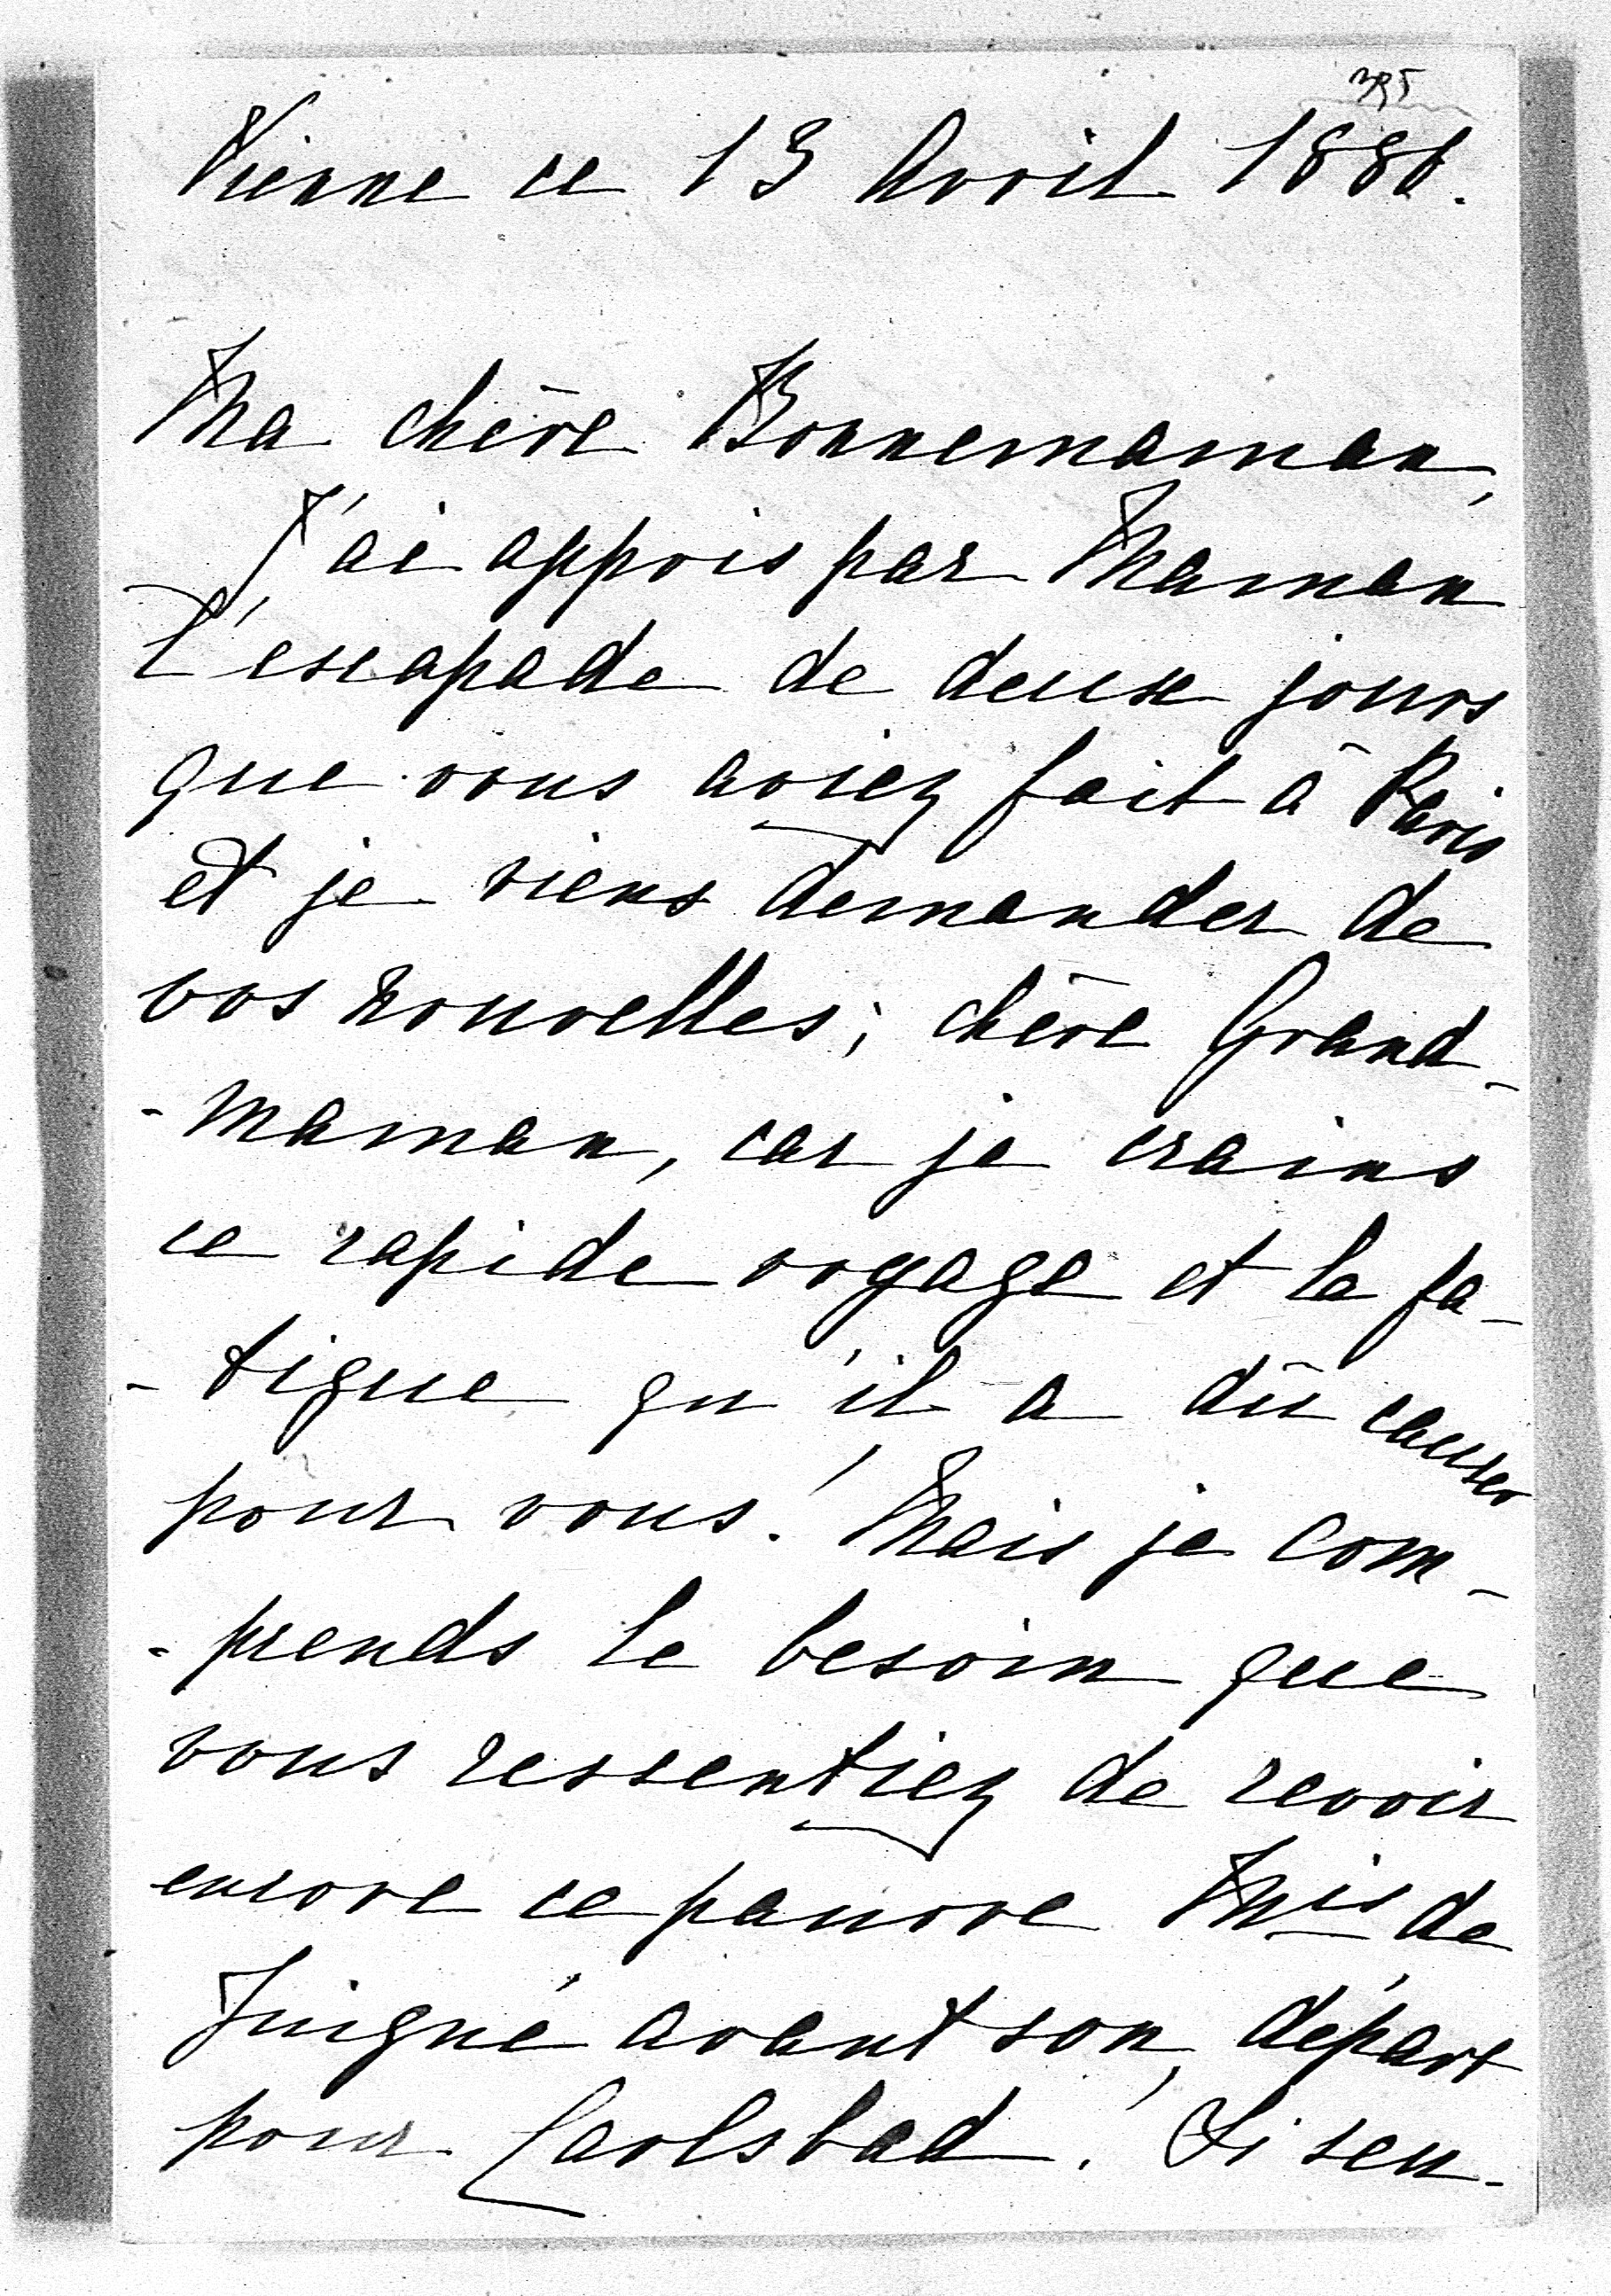 395
Vienne ce 13 Avril 1886.
Ma chère Bonnemaman,
J'ai appris par Maman
l'escapade de deux jours
que vous aviez fait à Paris
et je viens demander de
vos nouvelles, chère Grand-
-Maman, car je crains
ce rapide voyage et la fa-
-tigue qu'il a dû causer
pour vous! Mais je com-
-prends le besoin que
vous ressentiez de revoir
encore ce pauvre Mis de
Juigné avant son départ
pour Carlsbad. Si seu-